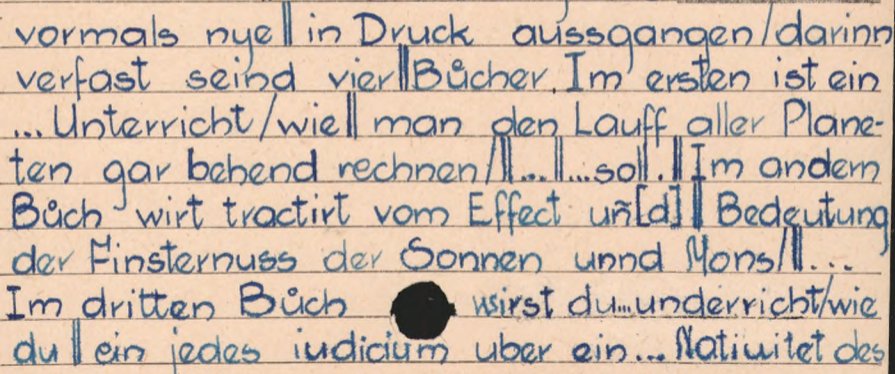 vormals nye‖in Druck aussgangen/darinn
verfast seind vier‖Bůcher. Im ersten ist ein
...Unterricht/wie‖man den Lauff aller Plane-
ten gar behend rechnen/‖...‖...soll.‖Im andern
Bůch wirt tractirt vom Effect uñ[d]‖Bedeutung
der Finsternuss der Sonnen unnd Mons/‖...
Im dritten Bůch wirst du...underricht/wie
du‖ein jedes iudicium uber ein...Natiuitet des